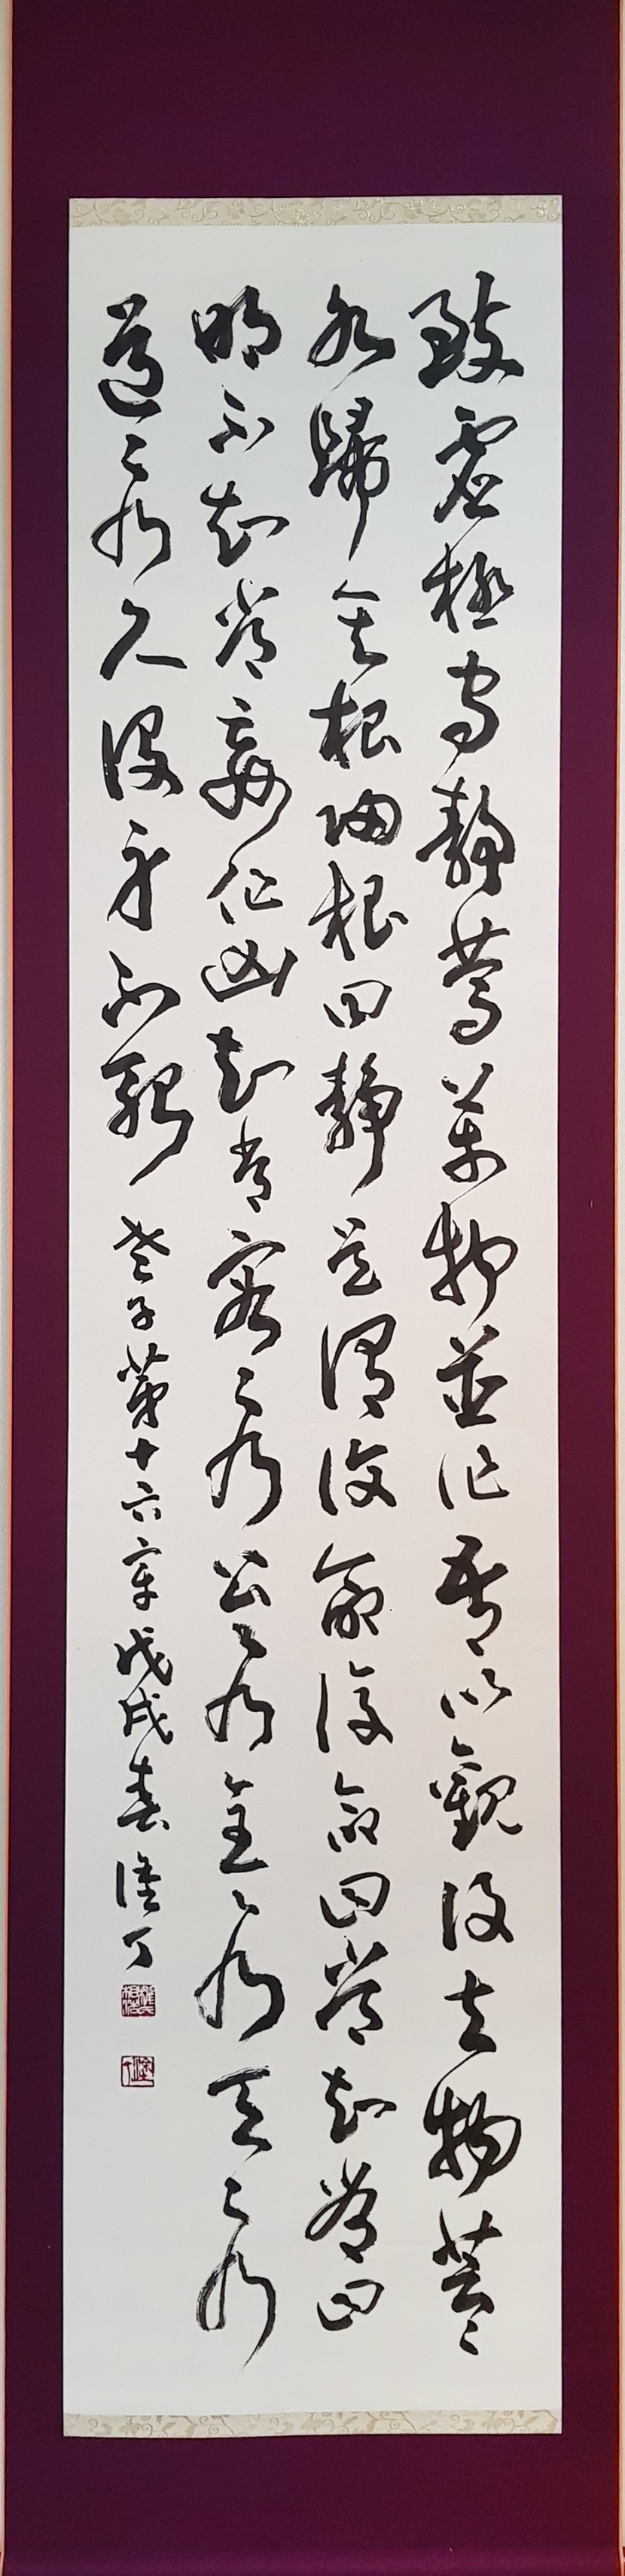 致虛極守靜篤萬物並作吾以觀復夫物芸〻
各歸其根歸根曰靜是謂復命復命曰常知常曰
明不知常妄作凶知常容〻乃公〻乃全〻乃天〻乃
道〻乃久沒身不殆 老子第十六章 戊戌春 丁